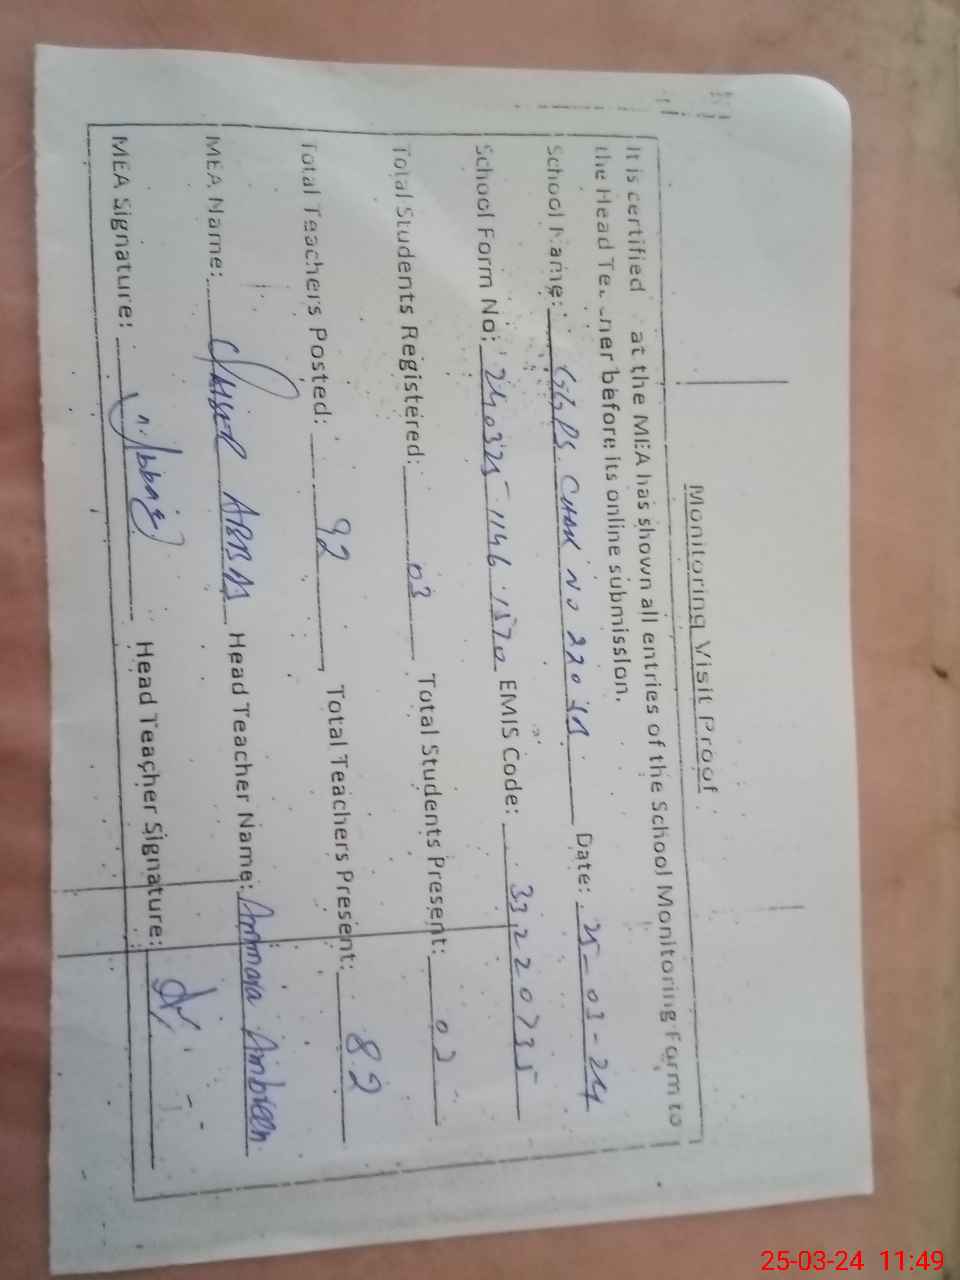 Monitoring Visit Proof
It is certified at the MEA has shown all entries of the School Monitoring Form to
the Head Te ner before its online submission.
School Name: GGPS CHAK NO 220 Date: 25-03-24
School Form No: EMIS Code: 33220735
Total Students Registered: 03 Total Students Present: 02
Total Teachers Posted: 92 Total Teachers Present: 82
MEA Name: ABBAS Head Teacher Name: Ammara Ambreen
MEA Signature: Head Teacher Signature:
25-03-24 11:49